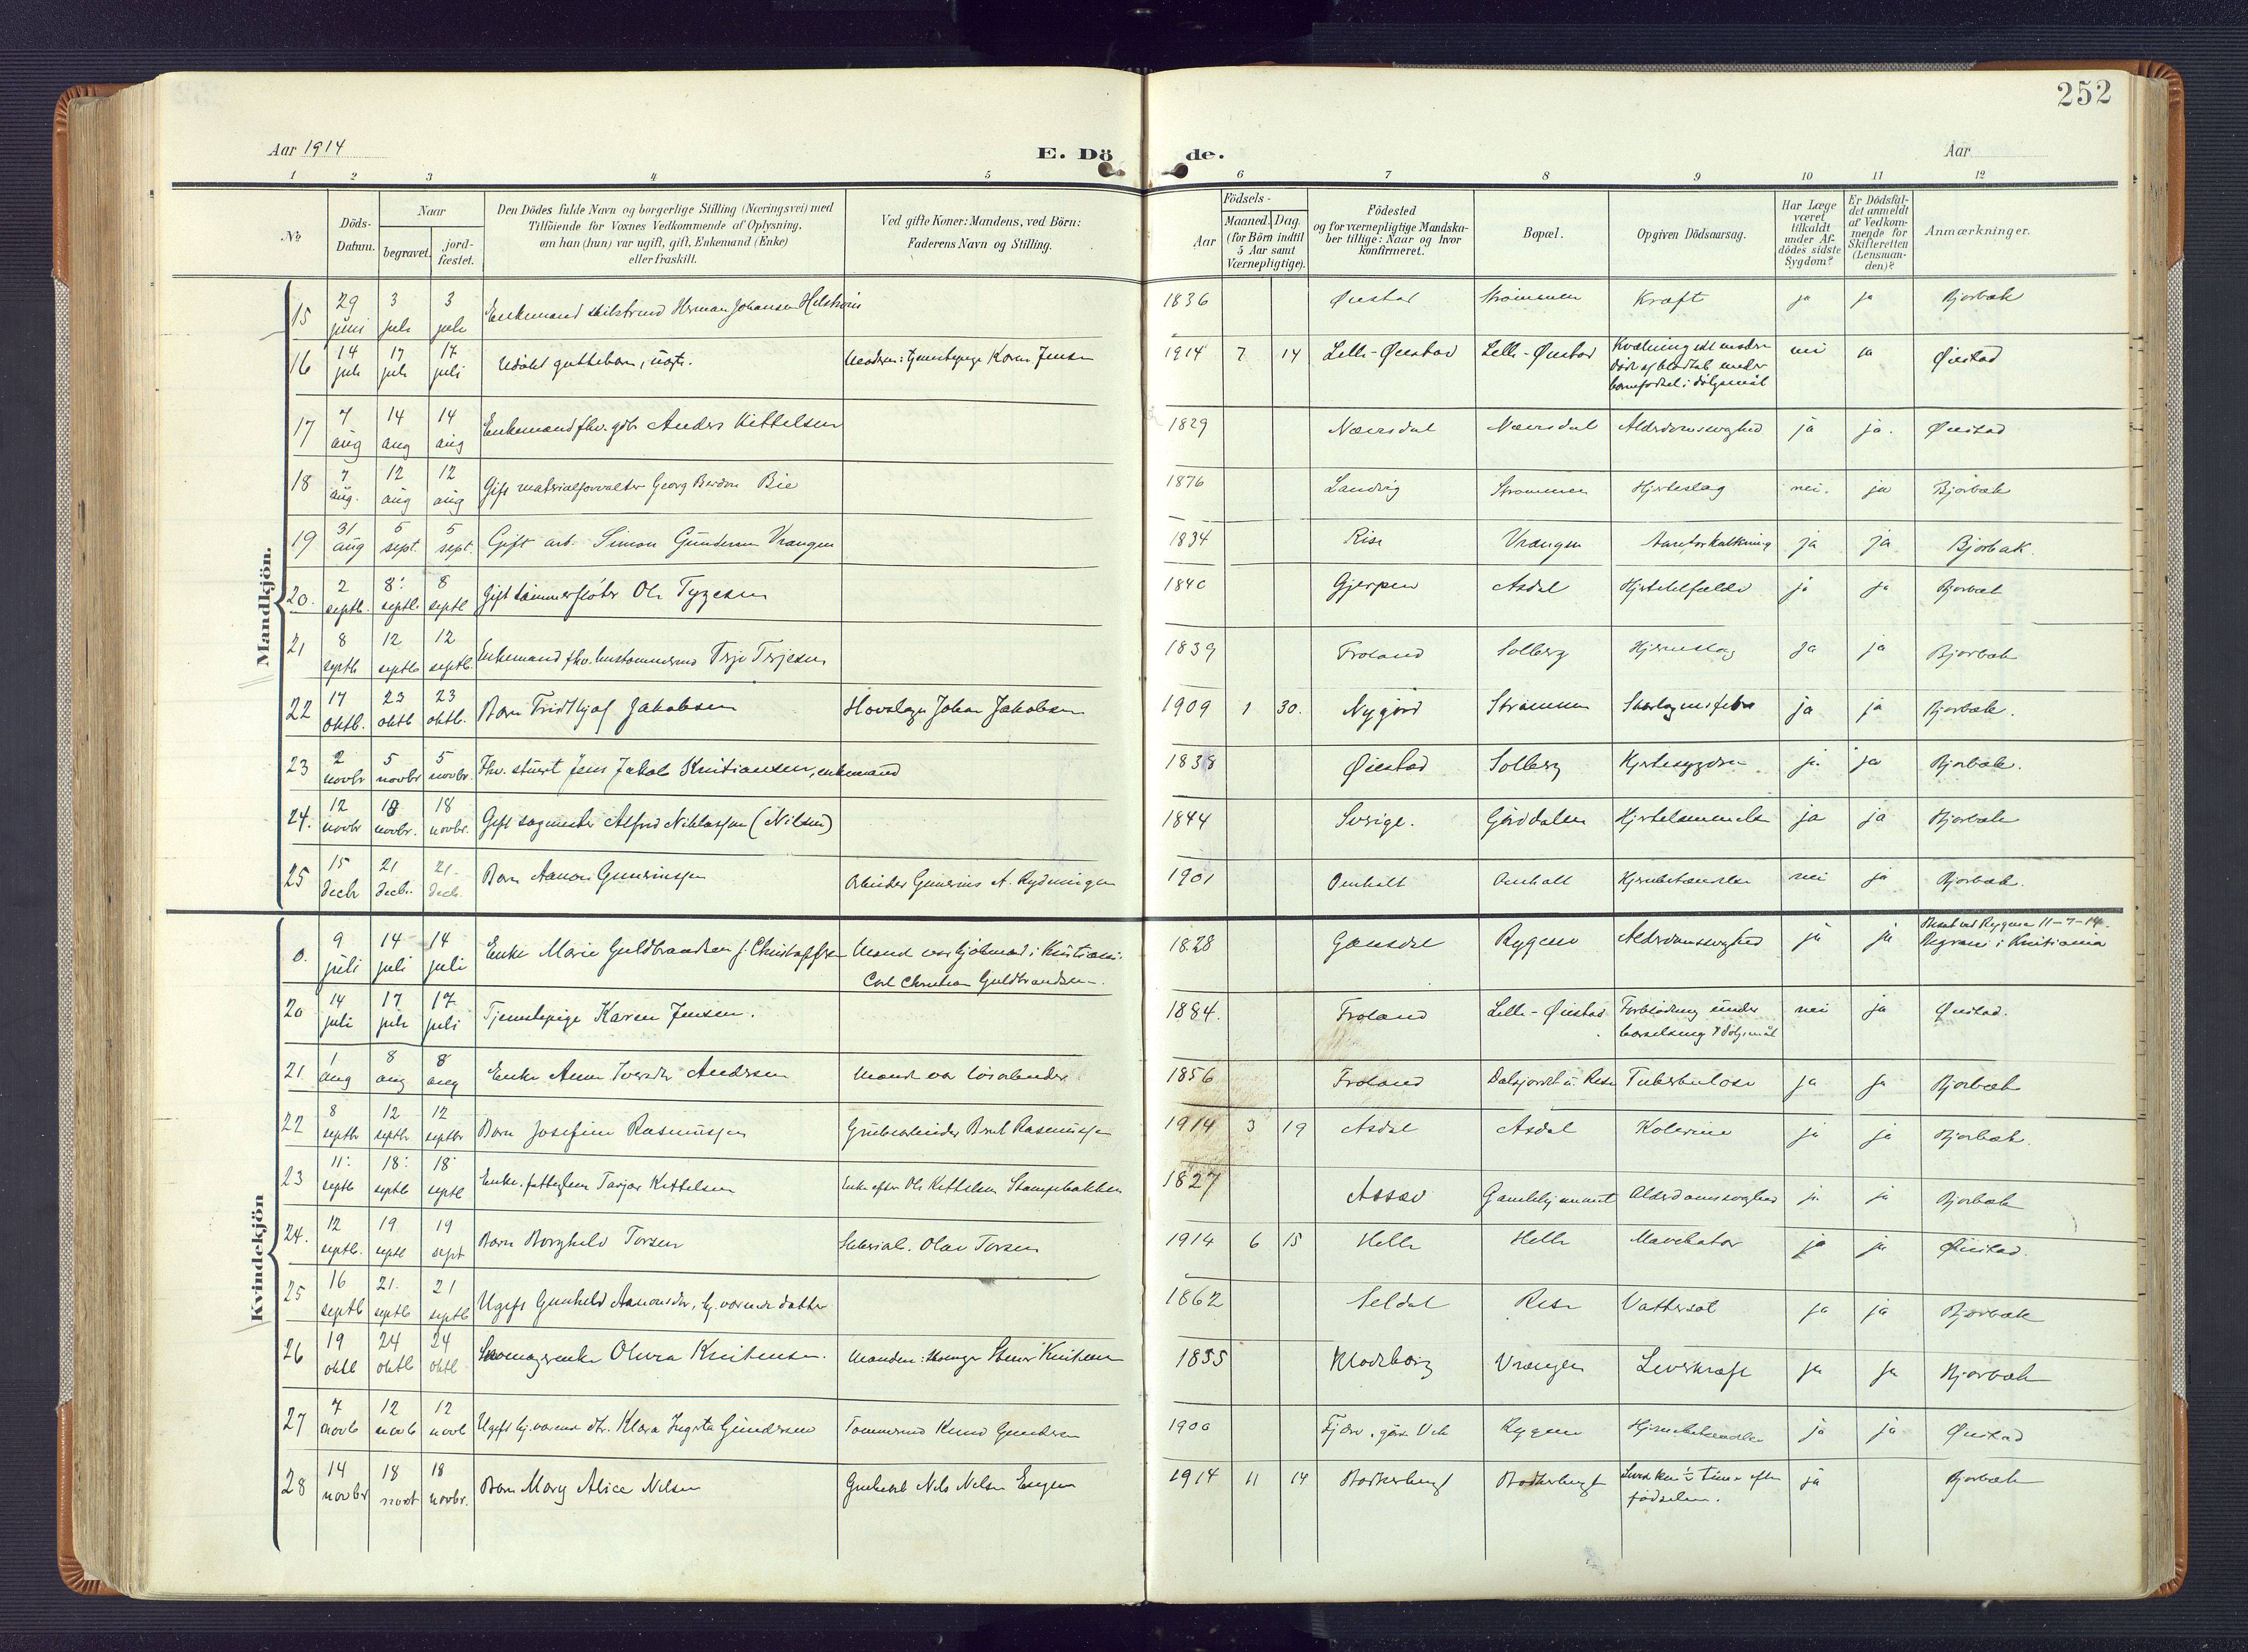 252
Aar 1914
E. Dö
de.
Aar
1 2 3 4 5 6 7 8 9 10 11 12
No
Döds-Datum.
Naar
begravet.
jord-fæstet.
Den Dödes fulde Navn og borgerlige Stilling (Næringsvei) med
Tilföiende for Voxnes Vedkommende af Oplysning,
om han (hun) var ugift, gift, Enkemand (Enke)
eller fraskilt.
Ved gifte Koner: Mandens, ved Börn:
Faderens Navn og Stilling.
Födsels-
Aar
Maaned. Dag.
(for Börn indtil
5 Aar samt
Værnepligtige).
Födested
og for værnepligtige Mandska-
ber tillige: Naar og hvor
konfirmeret.
Bopæl.
Opgiven Dödsaarsag.
Har Læge
været
tilkaldt
under Af-
dödes sidste
Sygdom?
Er Dödsfal-
det anmeldt
af Vedkom-
mende for
Skifteretten
(Lensman-
den)?
Anmærkninger.
Mandkjön.
15 29 juni 3 juli 3 juli Enkemand Herman Johansen 1836 Øiestad Strömmen Kræft ja ja Bjorbæk
16 14 juli 17 juli 17 juli Udöbt guttebarn, uægte. Moderen: tjenestepige Karen Jensen 1914 7 14 Lille-Øiestad Lille-Øiestad Kvælning idet moderen
döde af blodtab under
barnefødsel i dølgsmål nei ja Øiestad
17 7 aug 14 aug 14 aug Enkemand fhv. gdbr Anders Kittelsen 1829 Næersdal Næersdal Alderdomssvaghed ja ja. Øiestad
18 7 aug. 12 aug 12 aug Gift materialforvalter Georg Berdon Bie 1876 Landvig Strømmen Hjerteslag nei. ja Bjorbæk
19 31 aug 5 sept. 5 sept. Gift arb. Simon Gundersen Vrangen 1834 Rise Vrangen Aareforkalkning ja ja Bjorbæk.
20. 2 septb. 8 septb. 8 septb Gift tømmerfløter Ole Tygesen 1840 Gjerpen Asdal Hjertetilfælde ja ja Bjorbæk
21 8 septb 12 septb 12 septb. Enkemand fhv. hustømmermd Terje Terjesen 1839 Froland Solberg Hjerneslag ja ja Bjorbæk
22 17 oktb. 23 oktb 23 oktb. Barn Fridthjof Jakobsen Hovslager Johan Jakobsen 1909 1 30. Nygård Strømmen Skarlagensfeber ja ja Bjorbæk.
23 2 novbr 5 novbr 5 novbr. Fhv. stuert Jens Jakob Kristiansen, enkemand 1838 Øiestad Solberg Hjertesygdom ja ja Bjorbæk.
24. 12 novbr 18 novbr. 18 novbr. Gift sagmester Alfred Niklassen (Nilsen) 1844 Sverige. Gårdalen Hjertelammelse ja ja Bjorbæk
25 15 decb 21 decb. 21. decb. Barn Aanon Gunerinssen Arbeider Gunerius A. Rydningen 1901 Omholt Omholt Hjernebetændelse nei ja Bjorbæk.
Kvindekjön
9 juli 14 juli 14 juli Enke Marie Guldbrandsen f. Christoffersen Mand var i Kristiania:
Carl Christian Guldbrandsen. 1828 Gausdal Rygene Alderdomssvaghed ja ja Rygene 11-7-14.
Begravet i Kristiania
20 14 juli 17 juli 17. juli Tjenestepige Karen Jensen. 1884. Froland Lille-Øiestad Forblødning under
barselseng i dølgsmål nei ja Øiestad.
21 1 aug 8 aug 8 aug Enke Anne Iversdtr Andersen Mand var løsarbeider 1856 Froland Rise Tuberkulose ja ja Bjorbæk
22 8 septbr 12 septbr 12 septbr Barn Josefine Rasmussen Grubearbeider Rasmussen 1914 3 19 Asdal Asdal Kolerine ja ja Bjorbæk.
23 11. septb 18. septb 18 septb Enke, fattiglem Tarjer Kittelsen Enke efter Ole Kittelsen Stampebakken 1827 Assev Gamlehjemmet Alderdomssvaghed ja ja Bjorbæk
24. 12 septb. 19 septb 19 sept Barn Borghild Torsen Olav Torsen 1914 6 15 Helle Helle Mavekatar ja ja Øiestad.
25 16 septb 21. septb 21 septb Ugift Gunhild Aanonsdtr, hj. værende datter 1862 Seldal Rise Vattersot ja ja Bjorbæk
26 19 oktb 24 oktb 24 oktb Skomagerenke Olivia Kristensen. Manden: Kristensen 1855 Klodeborg Vrangen Leverkræft ja ja Bjorbæk
27 7 novb 12 novb 12 novb Ugift hj. værende dtr. Klara Ingerta Gundersen Tømmermd Knud Gundersen 1900 Fjære Rygene Hjernebetændelse ja ja Øiestad
28 14 novbr 18 novb 18 novbr. Barn Mary Alice Nilsen Grubearb Nils Nilsen 1914 11 14 Bødkerberget Bødkerberget Levet kun ½ time efter
fødselen. ja Bjorbæk